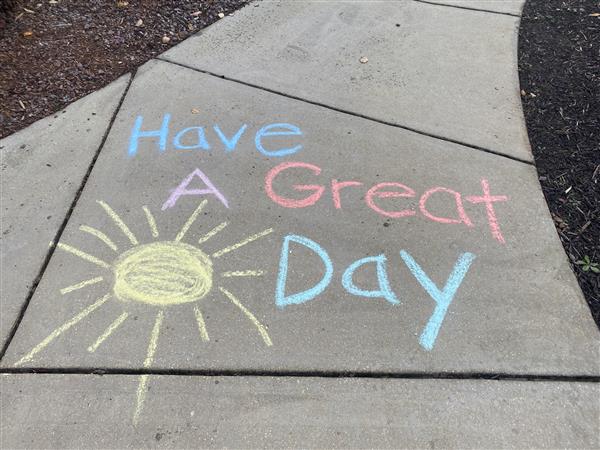 Have
A Great
Day